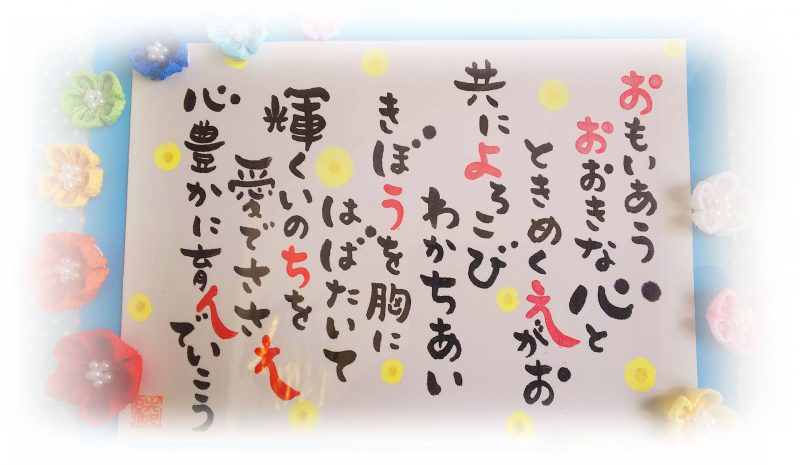 おもいあう
おおきな心と
ときめくえがお
共によろこび
わかちあい
きぼうを胸に
はばたいて
輝くいのちを
愛でささえ
心豊かに育んでいこう